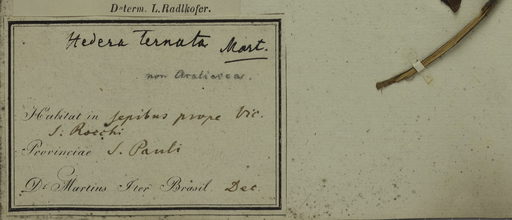 D-term. L. Radlkofer.
Hedera ternata Mart.
non Araliacea.
Habitat in sepibus prope Vic.
S. Rochi
Provinciae S. Pauli
Dr. Martius Iter Brasil. Dec.